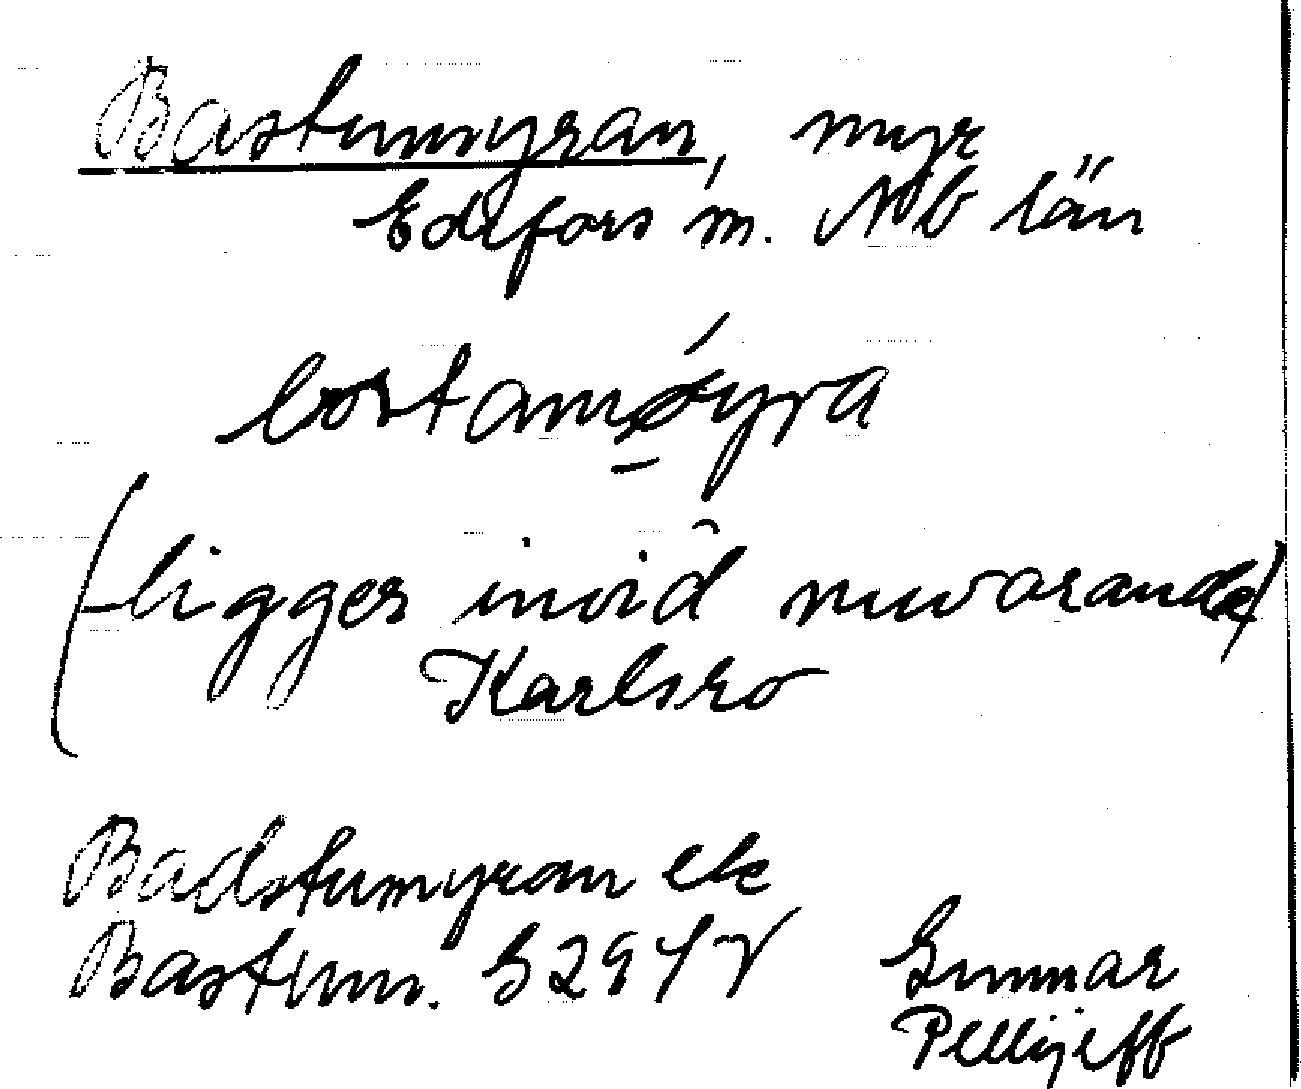 Bastumyran, myr
Edefors sn. Nb län
(ligger invid nuvarande)
Karlsro
Badstumyran ek
Bastum.
Gunnar
Pellijeff